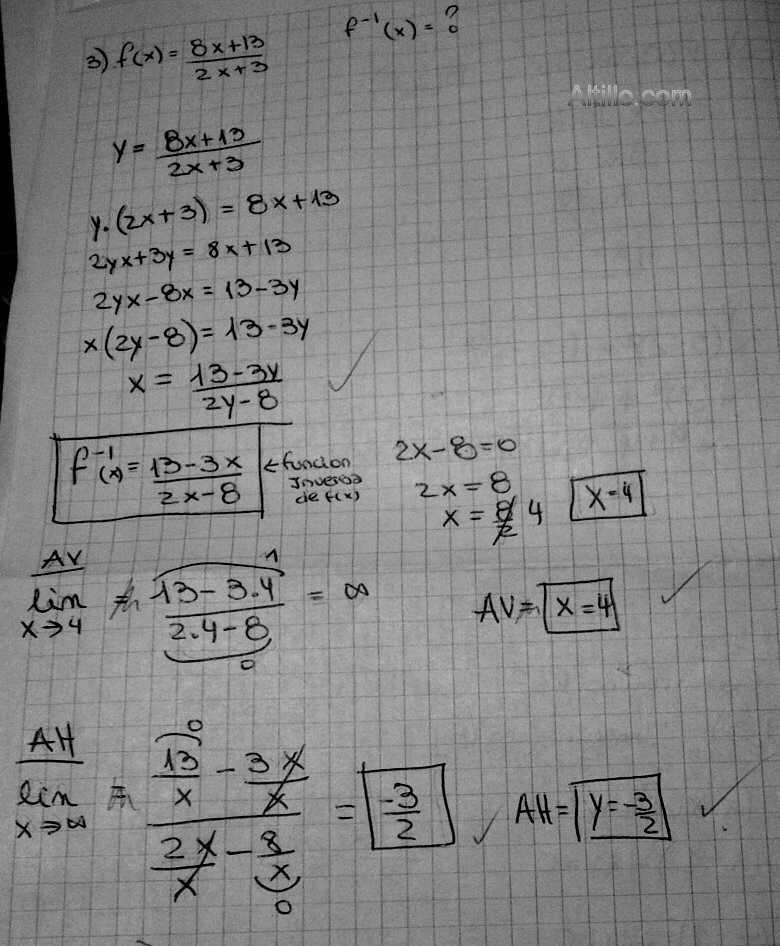 3) f(x) = 8x+13 / 2x+3    f⁻¹(x) = ?
Altillo.com
y = 8x+13 / 2x+3
y.(2x+3) = 8x+13
2yx+3y = 8x+13
2yx-8x = 13-3y
x(2y-8) = 13-3y
x = 13-3y / 2y-8 ✓
f⁻¹(x) = 13-3x / 2x-8 ← funcion Inversa de f(x)
2x-8=0
2x = 8
x = 8/2 4
x=4
AV
lim x→4 = 13-3.4 / 2.4-8 = ∞
1
0
AV = x=4 ✓
AH
lim x→∞ = 13/x - 3x/x / 2x/x - 8/x = -3/2 ✓
0
0
AH = y = -3/2 ✓